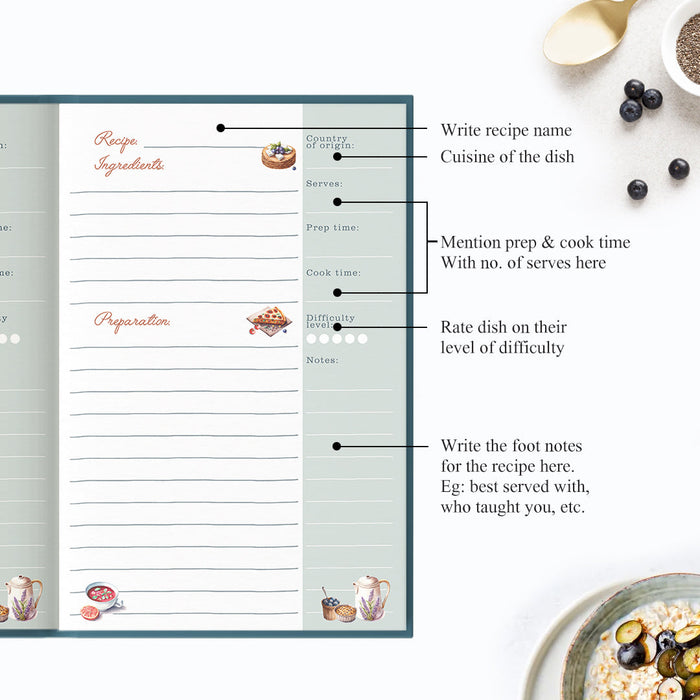 n:
me:
me:
ty
Recipe:
Ingredients:
Preparation:
Country
of origin:
Serves:
Prep time:
Cook time:
Difficulty
level:
Notes:
Write recipe name
Cuisine of the dish
Mention prep & cook time
With no. of serves here
Rate dish on their
level of difficulty
Write the foot notes
for the recipe here.
Eg: best served with,
who taught you, etc.